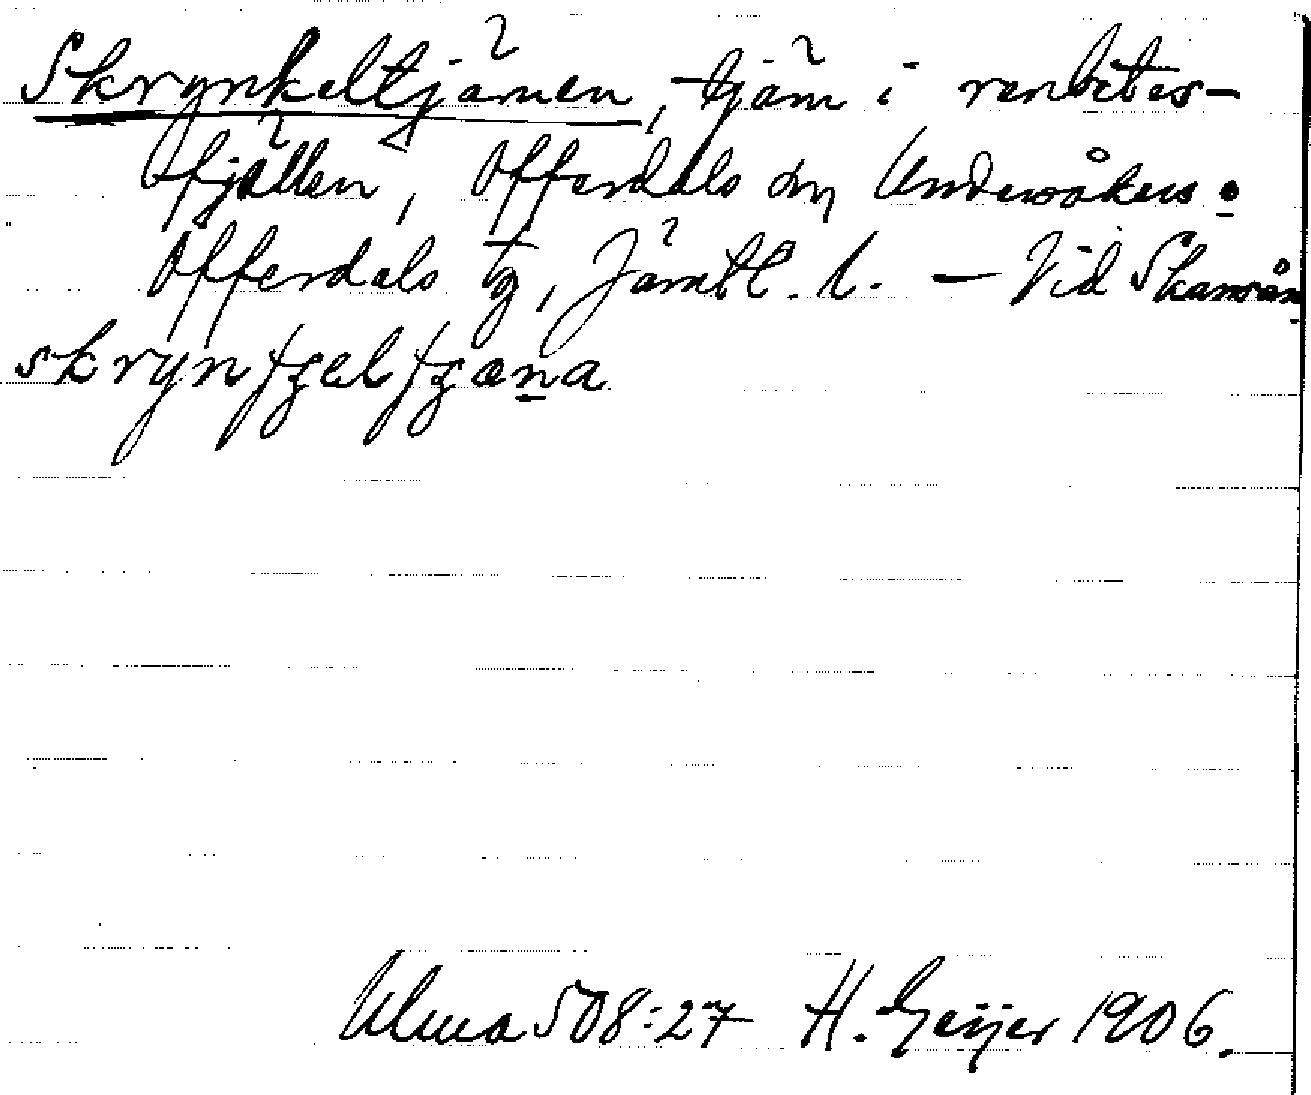 Skrynkeltjärnen, tjärn i renbetes-
fjällen, Offerdals och Undersåkers:
Offerdals tg, Jämtl. l. — Vid Skansån
skrynfzelfzæna
Ulma 508:27 H. Geijer 1906.